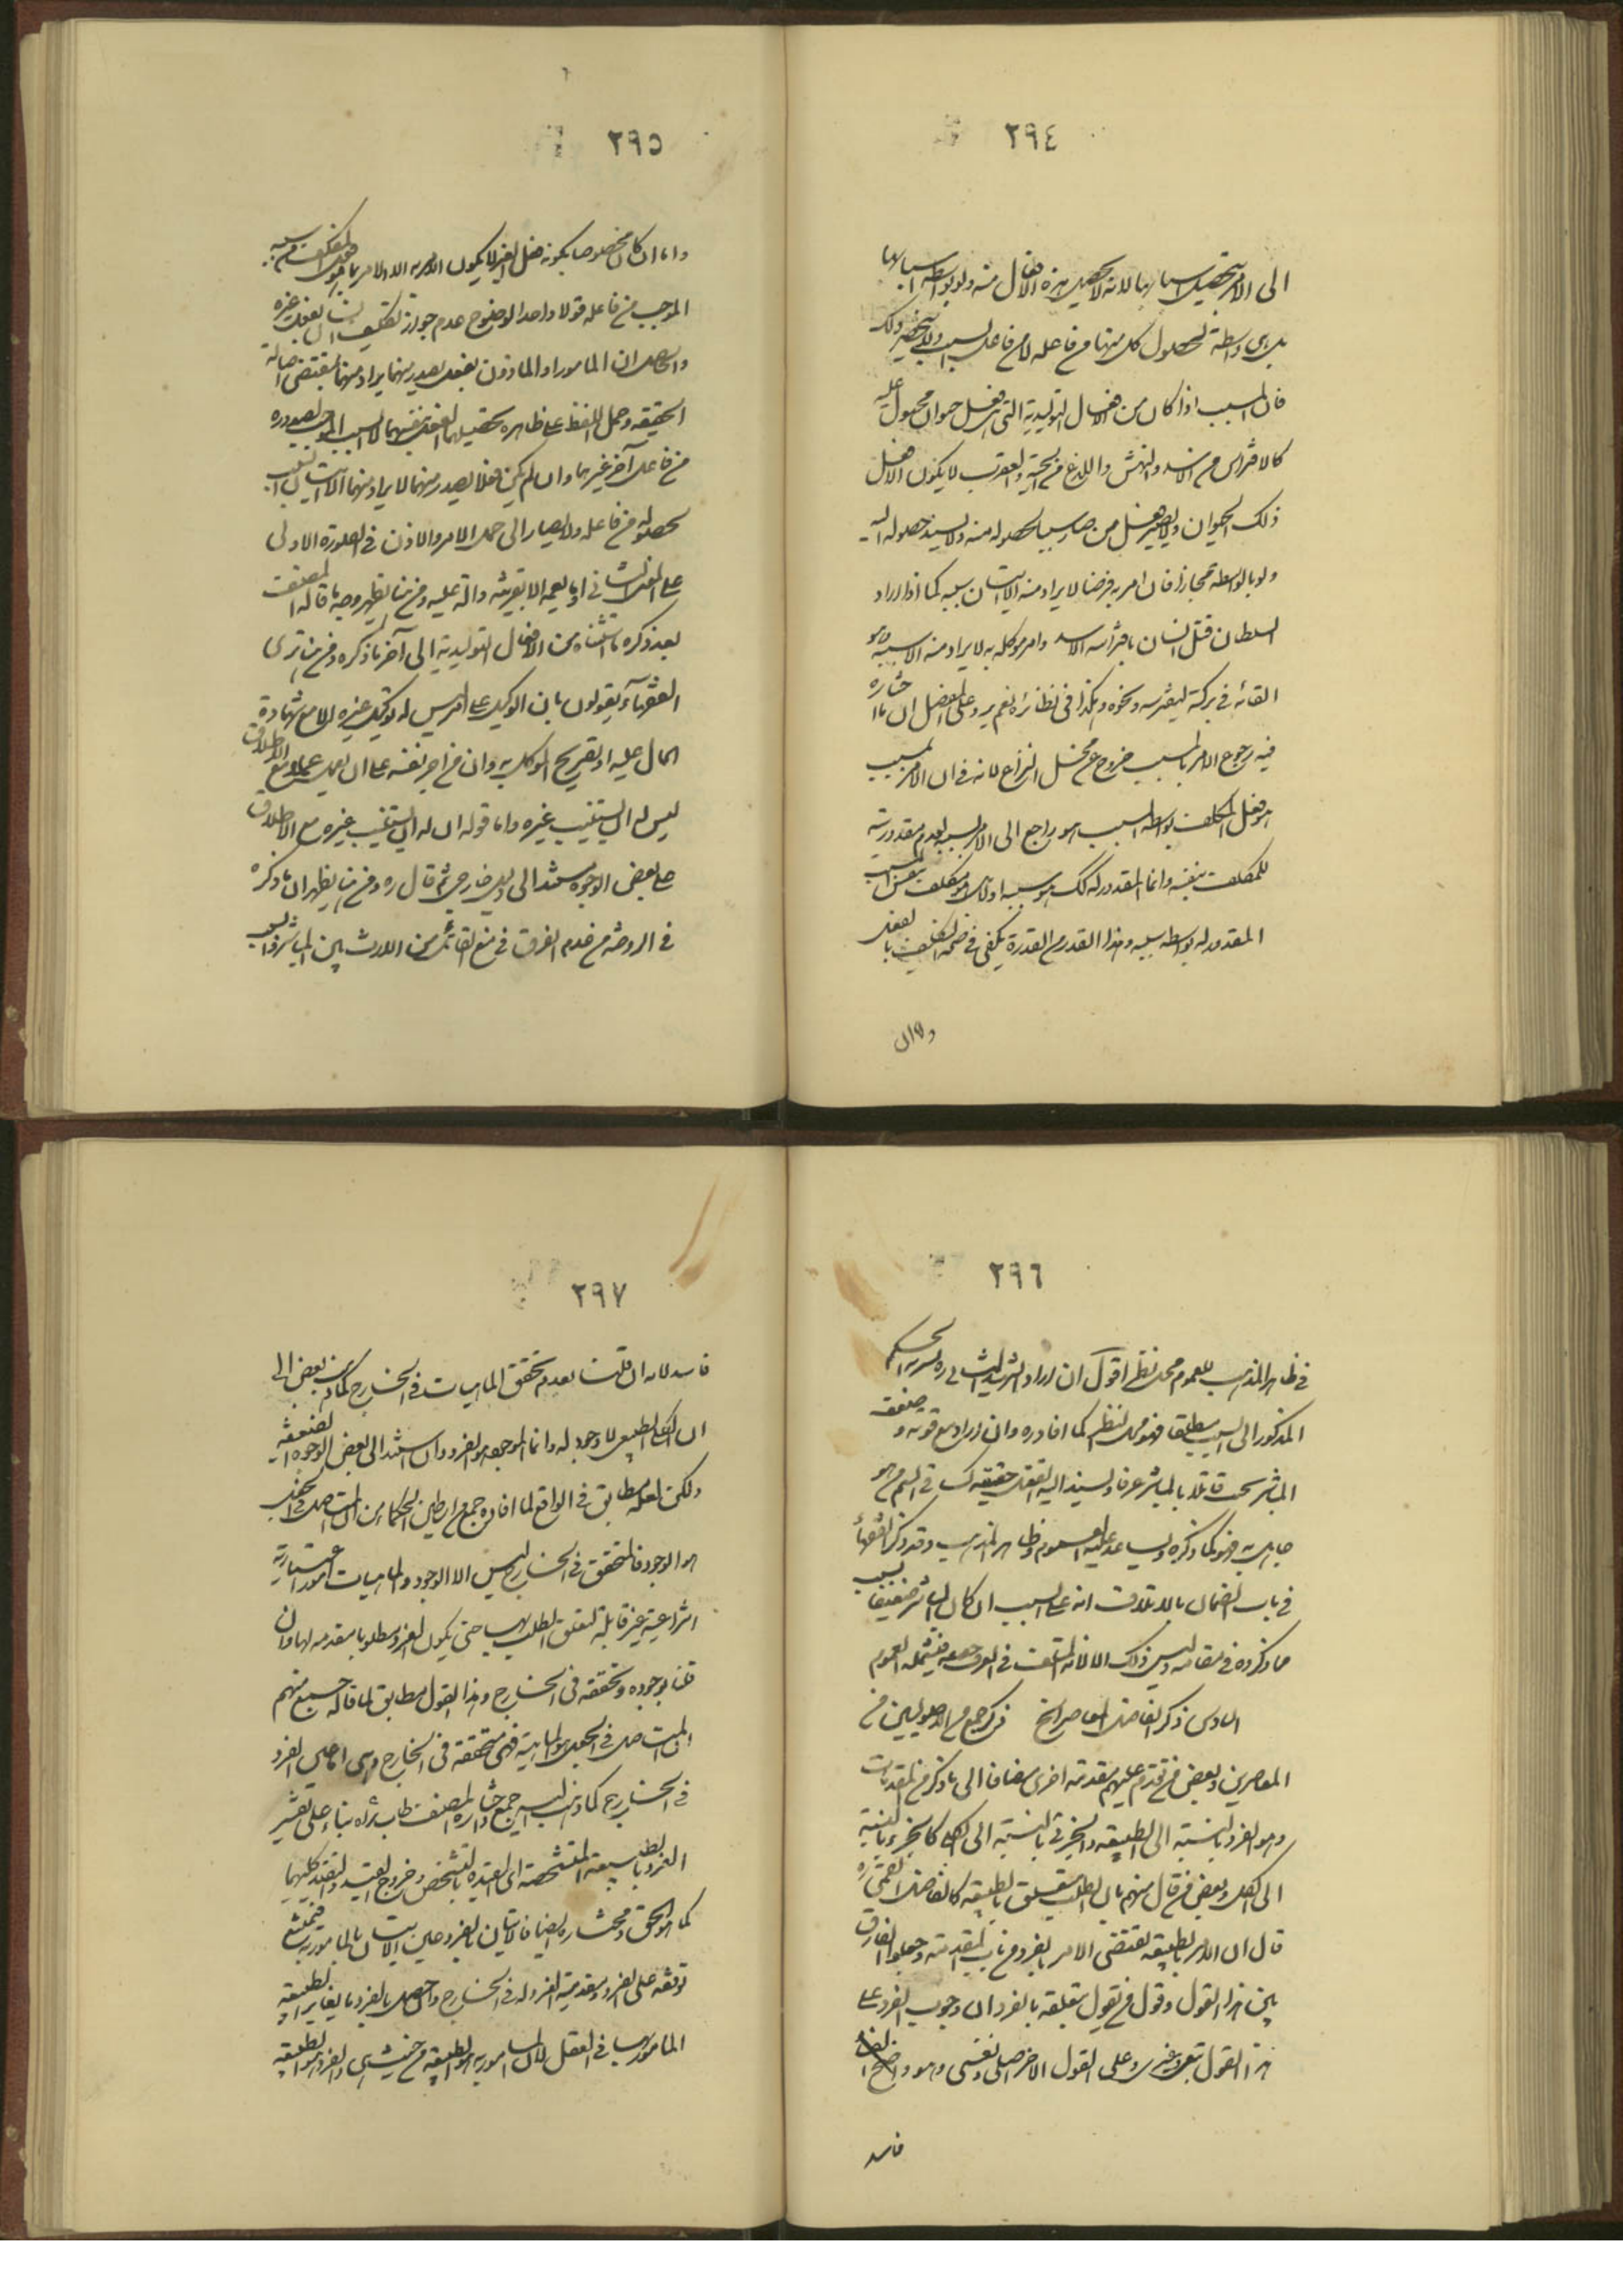 ٢٩٤
الى الامر بتحصيل اسبابها لانه لا تحصيل هذه الافعال منه ولو بواسطة اسبابها
بلا واسطة لحصول كل منها من فاعله لا من فاعل السبب
فان المسبب اذا كان من الافعال التوليدية التى هى فعل حيوان مجبول عليه
كالافتراس من الاسد والنهش واللدغ من الحية والعقرب لا يكون الا فعل
ذلك الحيوان ولا يصير فعل من صار سببا لحصوله منه ولا يسند حصوله اليه
ولو بالواسطة مجازا فان امر به فرضا لا يراد منه الا الاتيان بسببه كما اذا اراد
السلطان قتل انسان بافتراسه الاسد وامر موكله به لا يراد منه الا سببه وهو
القائه فى بركة ليفترسه ونحوه وهكذا فى نظائره نعم يرد على المفصل ان ما اختاره
فيه رجوع الامر بالمسبب خروج عن محل النزاع لانه فى ان الامر بالمسبب
هو فعل المكلف بواسطة السبب هو راجع الى الامر بالسبب لعدم مقدوريته
للمكلف بنفسه وانما المقدور له كك هو سببه اولا بل هو مكلف بنفس المسبب
المقدور له بواسطة سببه وهذا القدر من القدرة يكفى فى صحة التكليف بالفعل
واما ان
٢٩٥
واما ان كان مخصوصا بكونه فعل الغير لا يكون الامر به الا الامر بما هو فعل المكلف من سببه
الموجب من فاعله قولا واحدا لوضوح عدم جواز تكليف انسان بفعل غيره
والحاصل ان المامور او الماذون بفعل يصدر منهما يراد منهما بمقتضى اصالة
الحقيقه وحمل اللفظ على ظاهره تحصيلهما الفعل بنفسهما لا السبب الموجب لصدوره
من فاعل آخر غيرهما وان لم يكن فعلا يصدر منهما لا يراد منهما الا الاتيان بالسبب
لحصوله من فاعله ولا يصار الى حمل الامر والاذن فى الصورة الاولى
على المعنى الثانى او ما يعمه الا بقرينة دالة عليه ومن هنا يظهر وجه ما قاله المصنف
بعد ذكره ما استثناه من الافعال التوليدية الى آخر ما ذكره ومن هنا ترى
الفقهاء يقولون بان الوكيل على امر ليس له توكيل غيره الا مع شهادة
الحال عليه او تصريح الموكل به وان من اجر نفسه على ان يعمل عملا مع الاطلاق
ليس له ان يستنيب غيره واما قوله ان له ان يستنيب غيره مع الاطلاق
على بعض الوجوه مستند الى دليل خارجى ثم قال ره ومن هنا يظهر ان ما ذكره
فى الروضه من عدم الفرق فى منع القاتل من الارث بين المباشر والسبب
٢٩٦
فى ظاهر المذهب للعموم محل نظر اقول ان اراد الشهيد الثانى ره الحكم
المذكور الى السبب مطلقا فهو محل النظر كما افاده ره وان اراد مع قوته وضعف
المباشر بحيث قاتلا بالمباشر عرفا ويسند اليه القتل حقيقة كساقى السم من هو
جاهل به فهو كما ذكره ويساعد عليه العموم وظاهر المذهب وقد ذكر الفقهاء
فى باب الضمان بالاتلاف انه على السبب ان كان المباشر ضعيفا بسبب
مما ذكروه فى مقامه وليس ذلك الا لانه المتلف فى العرف حقيقه فيشمله العموم
السادس ذكر الفاضل المعاصر الخ ذكر جمع من الاصوليين من
المعاصرين وبعض من تقدم عليهم مقدمة اخرى مضافا الى ما ذكر من المقدمات
وهو الفرد بالنسبة الى الطبيعه والجزئى بالنسبة الى الكلى كالجزء بالنسبة
الى الكل وبعض من قال منهم بان الطلب متعلق بالطبيعه كالفاضل القمى ره
قال ان الامر بالطبيعه يقتضى الامر بالفرد من باب المقدمة وجعلوا الفارق
بين هذا القول وقول من يقول بتعلقه بالفرد ان وجوب الفرد على
هذا القول تبعى غيرى وعلى القول الاخر اصلى نفسى وهو واضح
فاسد
٢٩٧
فاسد لانه ان قلنا بعدم تحقق الماهيات فى الخارج كما ذهب بعض الى
ان الكلى الطبيعى لا وجود له وانما الموجود هو الفرد وان استند الى بعض الوجوه الضعيفه
ولكن لعله مطابق فى الواقع لما افاده جمع من اساطين الحكماء من ان المتاصل فى الجعل
هو الوجود فالمتحقق فى الخارج ليس الا الوجود والماهيات امور اعتبارية
انتزاعية غير قابلة لتعلق الطلب بها حتى يكون الفرد مطلوبا مقدمه لها وان
قلنا بوجوده وتحققه فى الخارج وهذا القول مطابق لما قاله جمع منهم
ان المتاصل فى الجعل هو الماهية فهى متحققة فى الخارج وهى اما عين الفرد
فى الخارج كما ذهب اليه جمع واختاره المصنف طاب ثراه بناء على تفسير
الفرد بالطبيعة المتشخصة اى المقيدة بالتشخص وخروج القيد والتقيد كليهما
كما هو الحق ومختاره ايضا فالاتيان بالفرد عين الاتيان بالمامور به فيمتنع
توقفه على الفرد ومقدمية الفرد له فى الخارج والحاصل بالفرد ما يغاير الطبيعه
المامور بها فى العقل لان المامور به هو الطبيعه من حيث هى والفرد هو الطبيعه